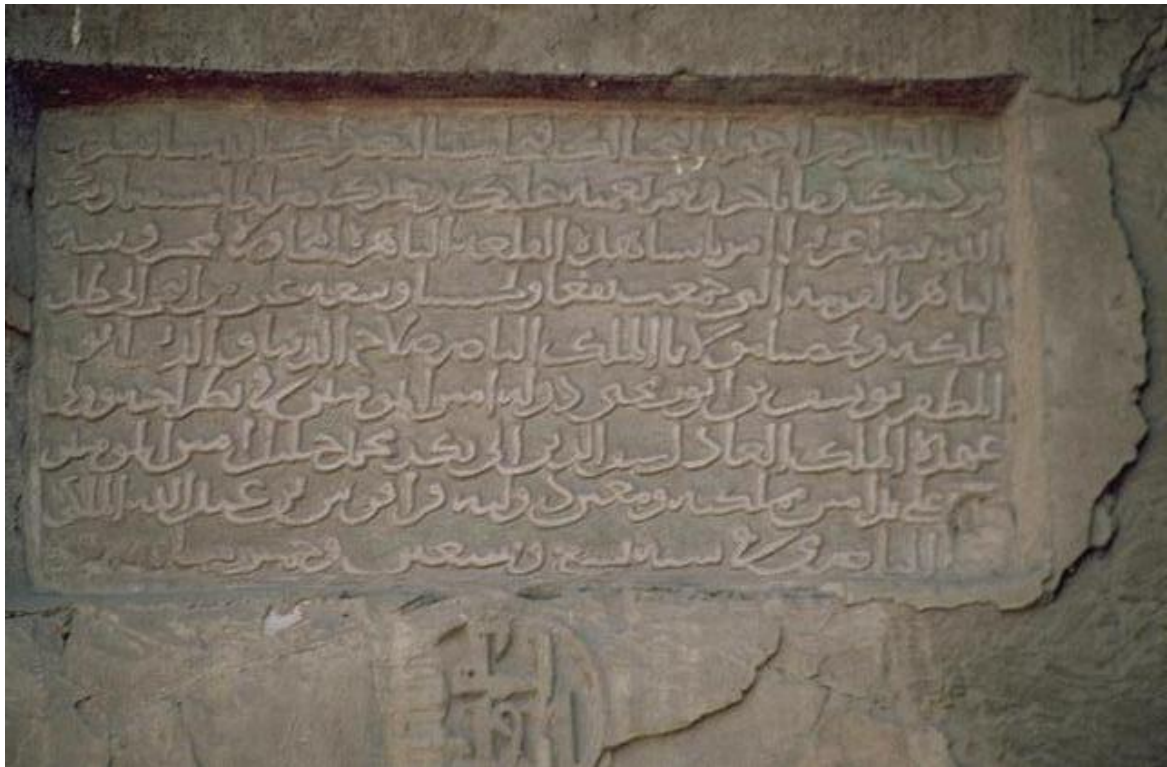 بسم الله الرحمن الرحيم إنا فتحنا لك فتحا مبينا ليغفر لك الله ما تقدم
من ذنبك وما تأخر ويتم نعمته عليك ويهديك صراطا مستقيما وينصرك
الله نصرا عزيزا أمر بإنشاء هذه القلعة الباهرة المجاورة لمحروسة
القاهرة بالعرمة التي جمعت نفعا وتحسينا وسعة على من التجأ إلى ظل
ملكه وتحصينا مولانا الملك الناصر صلاح الدنيا والدين أبو
المظفر يوسف بن أيوب محيي دولة أمير المؤمنين في نظر أخيه وولي
عهده الملك العادل سيف الدين أبي بكر محمد خليل أمير المؤمنين
على يد أمير مملكته ومعين دولته قراقوش بن عبد الله الملكي
الناصري في سنة تسع وسبعين وخمسمائة